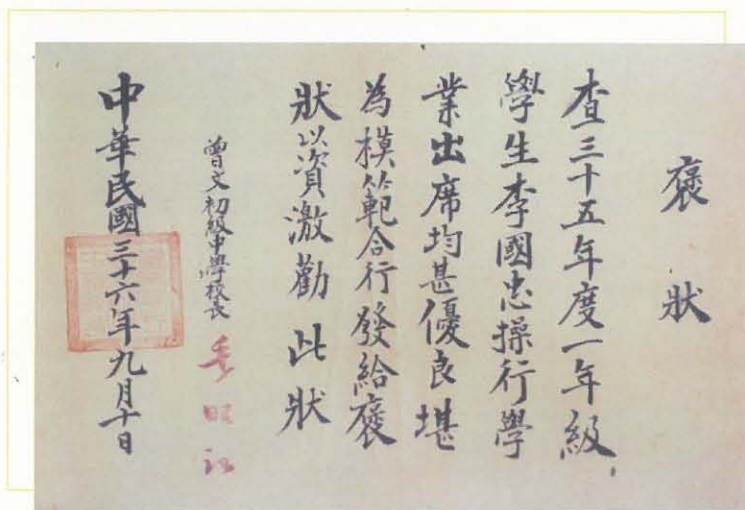 褒狀
查三十五年度一年級
學生李國忠操行學
業出席均甚優良堪
為模範合行發給褒
狀以資激勸此狀
曾文初級中學校長
中華民國三十六年九月十日